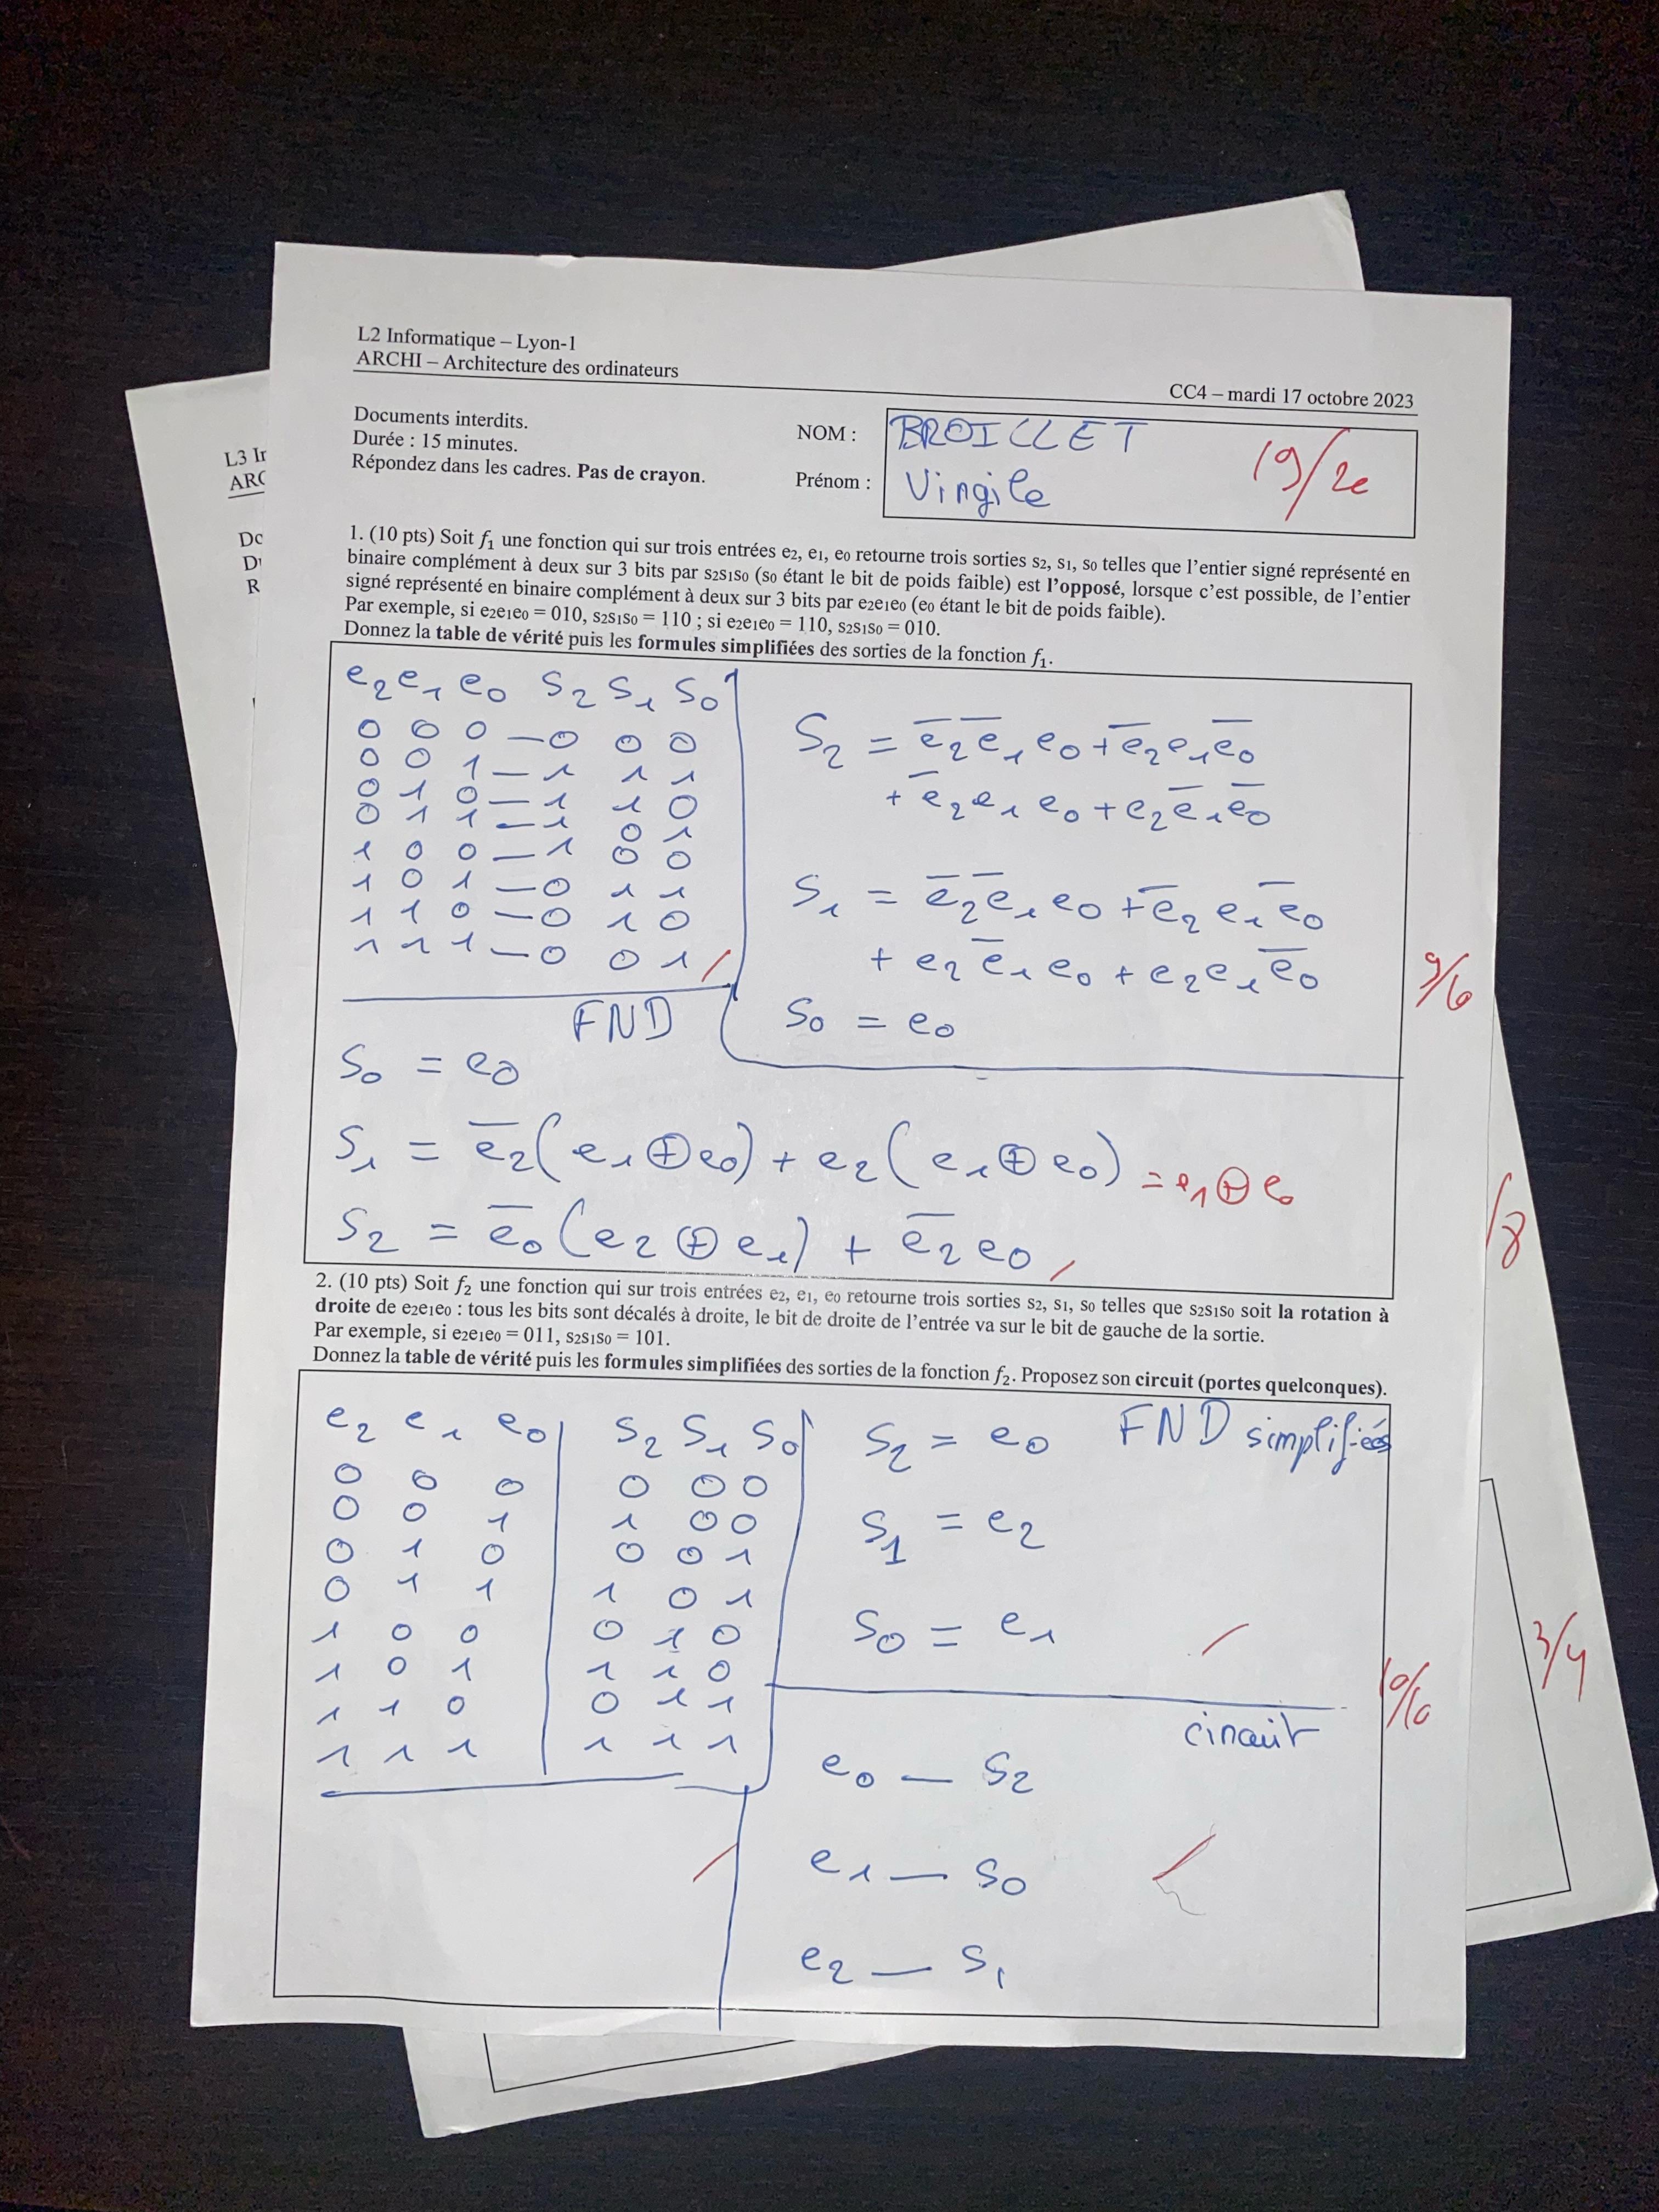 L2 Informatique – Lyon-1
ARCHI – Architecture des ordinateurs
CC4 – mardi 17 octobre 2023
Documents interdits.
Durée : 15 minutes.
Répondez dans les cadres. Pas de crayon.
NOM : BROILLET
Prénom : Virgile
19/20
L3 In
ARC
1. (10 pts) Soit f₁ une fonction qui sur trois entrées e₂, e₁, e₀ retourne trois sorties s₂, s₁, s₀ telles que l’entier signé représenté en
binaire complément à deux sur 3 bits par s₂s₁s₀ (s₀ étant le bit de poids faible) est l’opposé, lorsque c’est possible, de l’entier
signé représenté en binaire complément à deux sur 3 bits par e₂e₁e₀ (e₀ étant le bit de poids faible).
Par exemple, si e₂e₁e₀ = 010, s₂s₁s₀ = 110 ; si e₂e₁e₀ = 110, s₂s₁s₀ = 010.
Donnez la table de vérité puis les formules simplifiées des sorties de la fonction f₁.
e₂ e₁ e₀ s₂ s₁ s₀
0 0 0 – 0 0 0
0 0 1 – 1 1 1
0 1 0 – 1 1 0
0 1 1 – 1 0 1
1 0 0 – 1 0 0
1 0 1 – 0 1 1
1 1 0 – 0 1 0
1 1 1 – 0 0 1
S₂ = e̅₂e̅₁e₀ + e̅₂e₁e̅₀
+ e̅₂e₁e₀ + e₂e̅₁e̅₀
S₁ = e̅₂e̅₁e₀ + e̅₂e₁e̅₀
+ e₂e̅₁e₀ + e₂e₁e̅₀
S₀ = e₀
FND
S₀ = e₀
S₁ = e̅₂(e₁⊕e₀) + e₂(e₁⊕e₀) = e₁⊕e₀
S₂ = e̅₀(e₂⊕e₁) + e̅₂e₀
/8
2. (10 pts) Soit f₂ une fonction qui sur trois entrées e₂, e₁, e₀ retourne trois sorties s₂, s₁, s₀ telles que s₂s₁s₀ soit la rotation à
droite de e₂e₁e₀ : tous les bits sont décalés à droite, le bit de droite de l’entrée va sur le bit de gauche de la sortie.
Par exemple, si e₂e₁e₀ = 011, s₂s₁s₀ = 101.
Donnez la table de vérité puis les formules simplifiées des sorties de la fonction f₂. Proposez son circuit (portes quelconques).
e₂ e₁ e₀ s₂ s₁ s₀
0 0 0 0 0 0
0 0 1 1 0 0
0 1 0 0 0 1
0 1 1 1 0 1
1 0 0 0 1 0
1 0 1 1 1 0
1 1 0 0 1 1
1 1 1 1 1 1
FND simplifiées
S₂ = e₀
S₁ = e₂
S₀ = e₁
3/4
circuit
e₀ — S₂
e₁ — S₀
e₂ — S₁